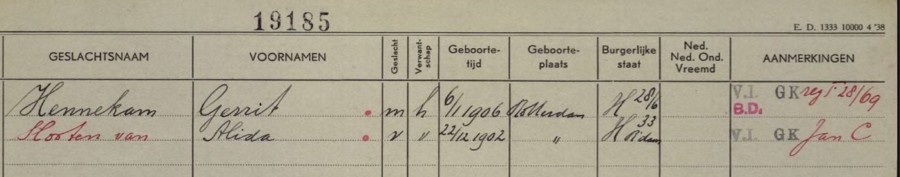 19185
E. D. 1333 10000 4 '38
GESLACHTSNAAM VOORNAMEN Geslacht Verwant-schap Geboorte-tijd Geboorte-plaats Burgerlijke staat Ned. Ned. Ond. Vreemd AANMERKINGEN
Hennekam Gerrit m h 6/1 1906 Rotterdam H 28/6 V.I. GK reg F 28/69
B.D.
Hooten van Alida v " 22/12 1902 " H 33 R'dam V.I. GK Jan C